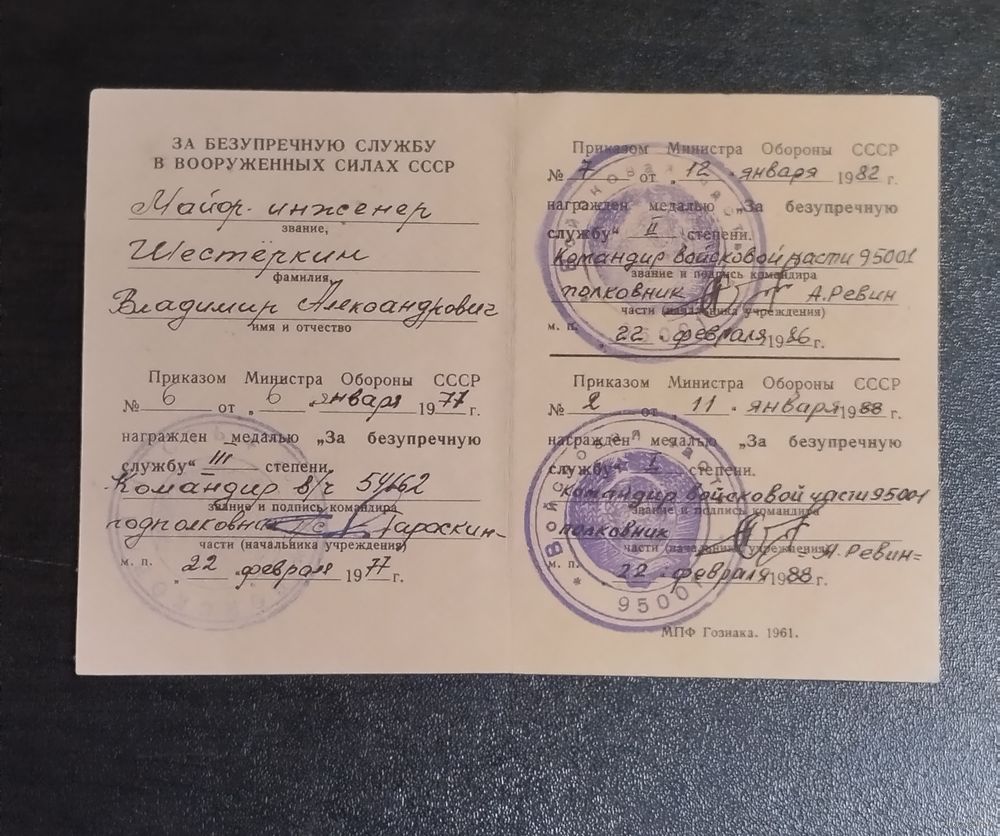 ЗА БЕЗУПРЕЧНУЮ СЛУЖБУ
В ВООРУЖЕННЫХ СИЛАХ СССР
Майор-инженер
звание,
Шестёркин
фамилия,
Владимир Александрович
имя и отчество
Приказом Министра Обороны СССР
№ 6 от „ 6 " января 1977 г.
награжден медалью „За безупречную
службу“ III степени.
Командир в/ч 54662
звание и подпись командира
подполковник Тараскин
части (начальника учреждения)
м. п. „ 22 " февраля 1977 г.
Приказом Министра Обороны СССР
№ 7 от „ 12 " января 1982 г.
награжден медалью „За безупречную
службу“ II степени.
Командир войсковой части 95001
звание и подпись командира
полковник А.Ревин
части (начальника учреждения)
м. п. „ 22 " февраля 1986 г.
Приказом Министра Обороны СССР
№ 2 от „ 11 " января 1988 г.
награжден медалью „За безупречную
службу“ I степени.
Командир войсковой части 95001
звание и подпись командира
полковник А.Ревин
части (начальника учреждения)
м. п. „ 22 " февраля 1988 г.
Войсковая часть
95001
МПФ Гознака. 1961.